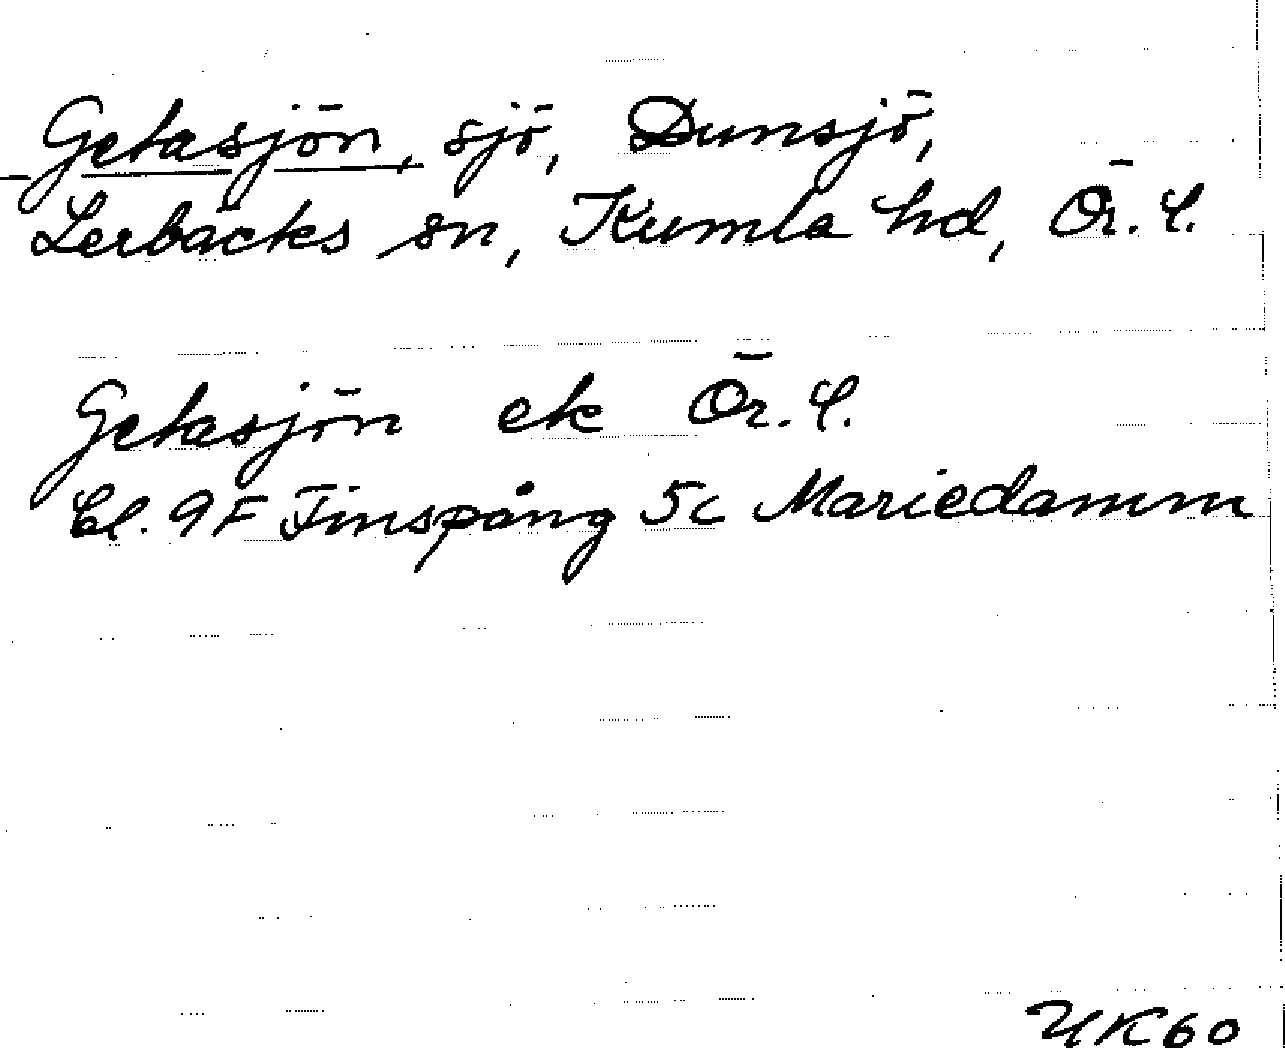 Getasjön, sjö, Dunsjö,
Lerbäcks sn, Kumla hd, Ör. l.
Getasjön ek Ör. l.
bl. 9F Finspång 5c Mariedamm
UK60